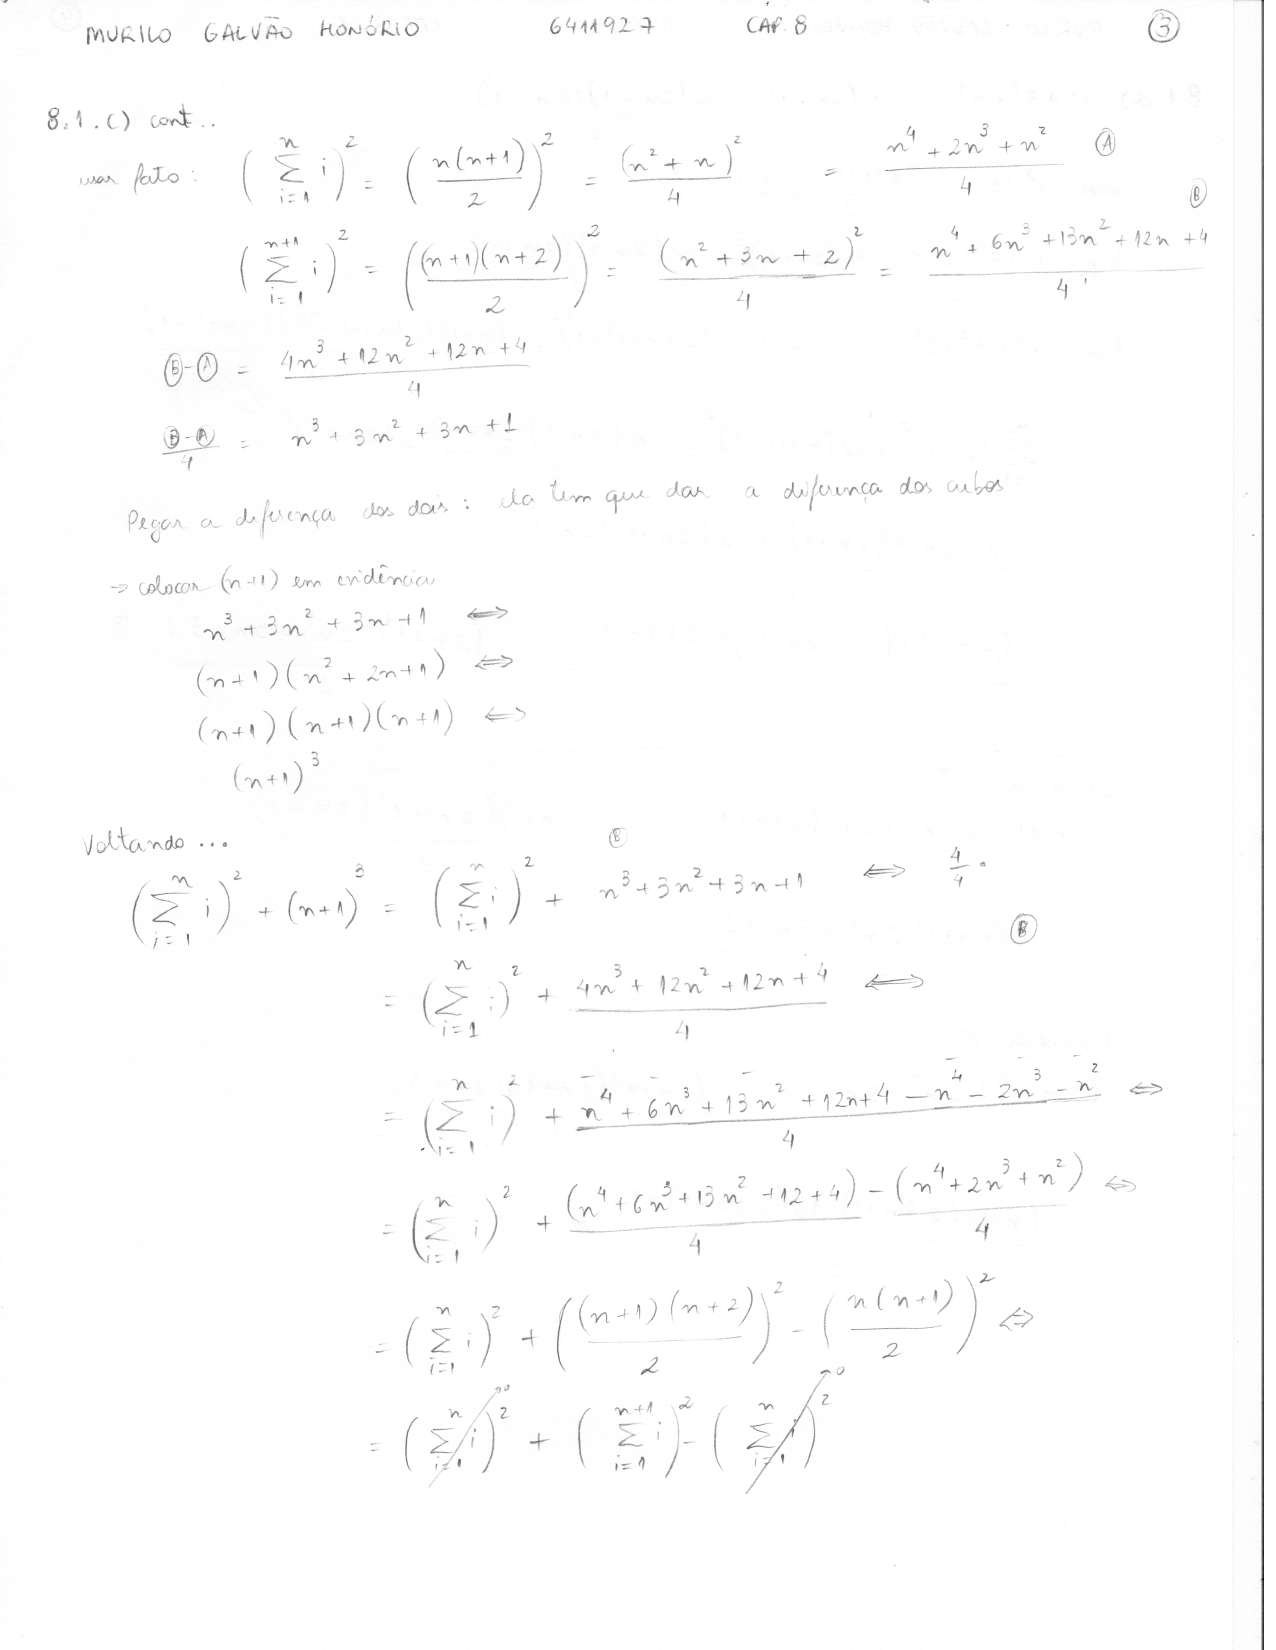 MURILO GALVÃO HONÓRIO 6411927 CAP. 8 ③
8.1.c) cont..
usar fato: (∑_{i=1}^{n} i)² = (n(n+1)/2)² = (n² + n)²/4 = (n⁴ + 2n³ + n²)/4 Ⓐ
(∑_{i=1}^{n+1} i)² = ((n+1)(n+2)/2)² = (n² + 3n + 2)²/4 = (n⁴ + 6n³ + 13n² + 12n + 4)/4 Ⓑ
Ⓑ-Ⓐ = (4n³ + 12n² + 12n + 4)/4
(Ⓑ-Ⓐ)/4 = n³ + 3n² + 3n + 1
Pegar a diferença dos dois: ela tem que dar a diferença dos cubos
→ colocar (n+1) em evidência
n³ + 3n² + 3n + 1 ⇔
(n+1)(n² + 2n+1) ⇔
(n+1)(n+1)(n+1) ⇔
(n+1)³
Voltando ...
(∑_{i=1}^{n} i)² + (n+1)³ = (∑_{i=1}^{n} i)² + n³+3n²+3n+1 Ⓑ ⇔ 4/4 ·
= (∑_{i=1}^{n} i)² + (4n³ + 12n² + 12n + 4)/4 ⇔ Ⓑ
= (∑_{i=1}^{n} i)² + (n⁴ + 6n³ + 13n² + 12n+4 − n⁴ − 2n³ − n²)/4 ⇔
= (∑_{i=1}^{n} i)² + (n⁴+6n³+13n²+12+4)/4 − (n⁴+2n³+n²)/4 ⇔
= (∑_{i=1}^{n} i)² + ((n+1)(n+2)/2)² − (n(n+1)/2)² ⇔
= (∑_{i=1}^{n} i)² →0 + (∑_{i=1}^{n+1} i)² − (∑_{i=1}^{n} i)² →0